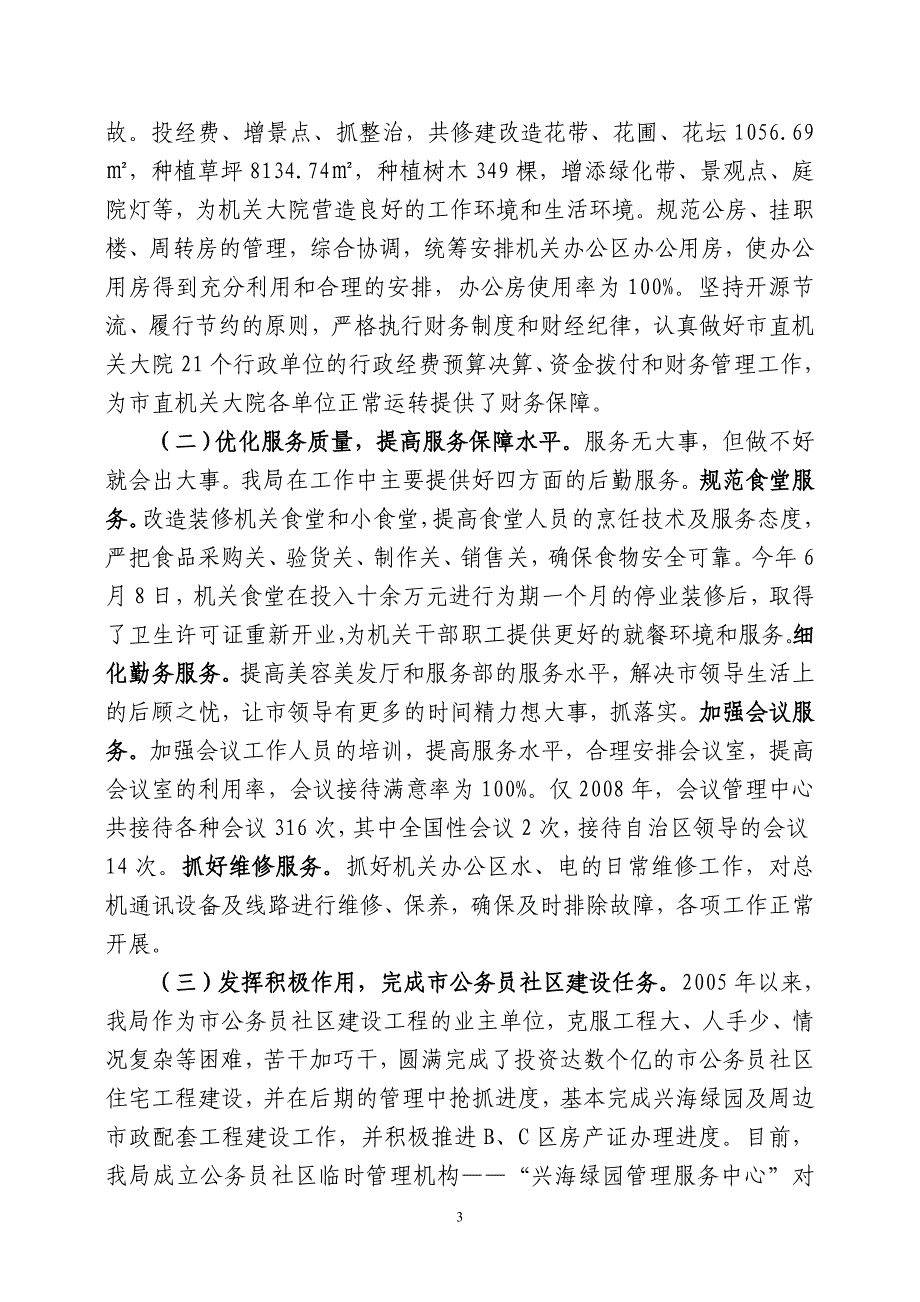 故。投经费、增景点、抓整治，共修建改造花带、花圃、花坛 1056.69
㎡，种植草坪 8134.74㎡，种植树木 349 棵，增添绿化带、景观点、庭
院灯等，为机关大院营造良好的工作环境和生活环境。规范公房、挂职
楼、周转房的管理，综合协调，统筹安排机关办公区办公用房，使办公
用房得到充分利用和合理的安排，办公房使用率为 100%。坚持开源节
流、履行节约的原则，严格执行财务制度和财经纪律，认真做好市直机
关大院 21 个行政单位的行政经费预算决算、资金拨付和财务管理工作，
为市直机关大院各单位正常运转提供了财务保障。
（二）优化服务质量，提高服务保障水平。服务无大事，但做不好
就会出大事。我局在工作中主要提供好四方面的后勤服务。规范食堂服
务。改造装修机关食堂和小食堂，提高食堂人员的烹饪技术及服务态度，
严把食品采购关、验货关、制作关、销售关，确保食物安全可靠。今年 6
月 8 日，机关食堂在投入十余万元进行为期一个月的停业装修后，取得
了卫生许可证重新开业，为机关干部职工提供更好的就餐环境和服务。细
化勤务服务。提高美容美发厅和服务部的服务水平，解决市领导生活上
的后顾之忧，让市领导有更多的时间精力想大事，抓落实。加强会议服
务。加强会议工作人员的培训，提高服务水平，合理安排会议室，提高
会议室的利用率，会议接待满意率为 100%。仅 2008 年，会议管理中心
共接待各种会议 316 次，其中全国性会议 2 次，接待自治区领导的会议
14 次。抓好维修服务。抓好机关办公区水、电的日常维修工作，对总
机通讯设备及线路进行维修、保养，确保及时排除故障，各项工作正常
开展。
（三）发挥积极作用，完成市公务员社区建设任务。2005 年以来，
我局作为市公务员社区建设工程的业主单位，克服工程大、人手少、情
况复杂等困难，苦干加巧干，圆满完成了投资达数个亿的市公务员社区
住宅工程建设，并在后期的管理中抢抓进度，基本完成兴海绿园及周边
市政配套工程建设工作，并积极推进 B、C 区房产证办理进度。目前，
我局成立公务员社区临时管理机构——“兴海绿园管理服务中心”对
3